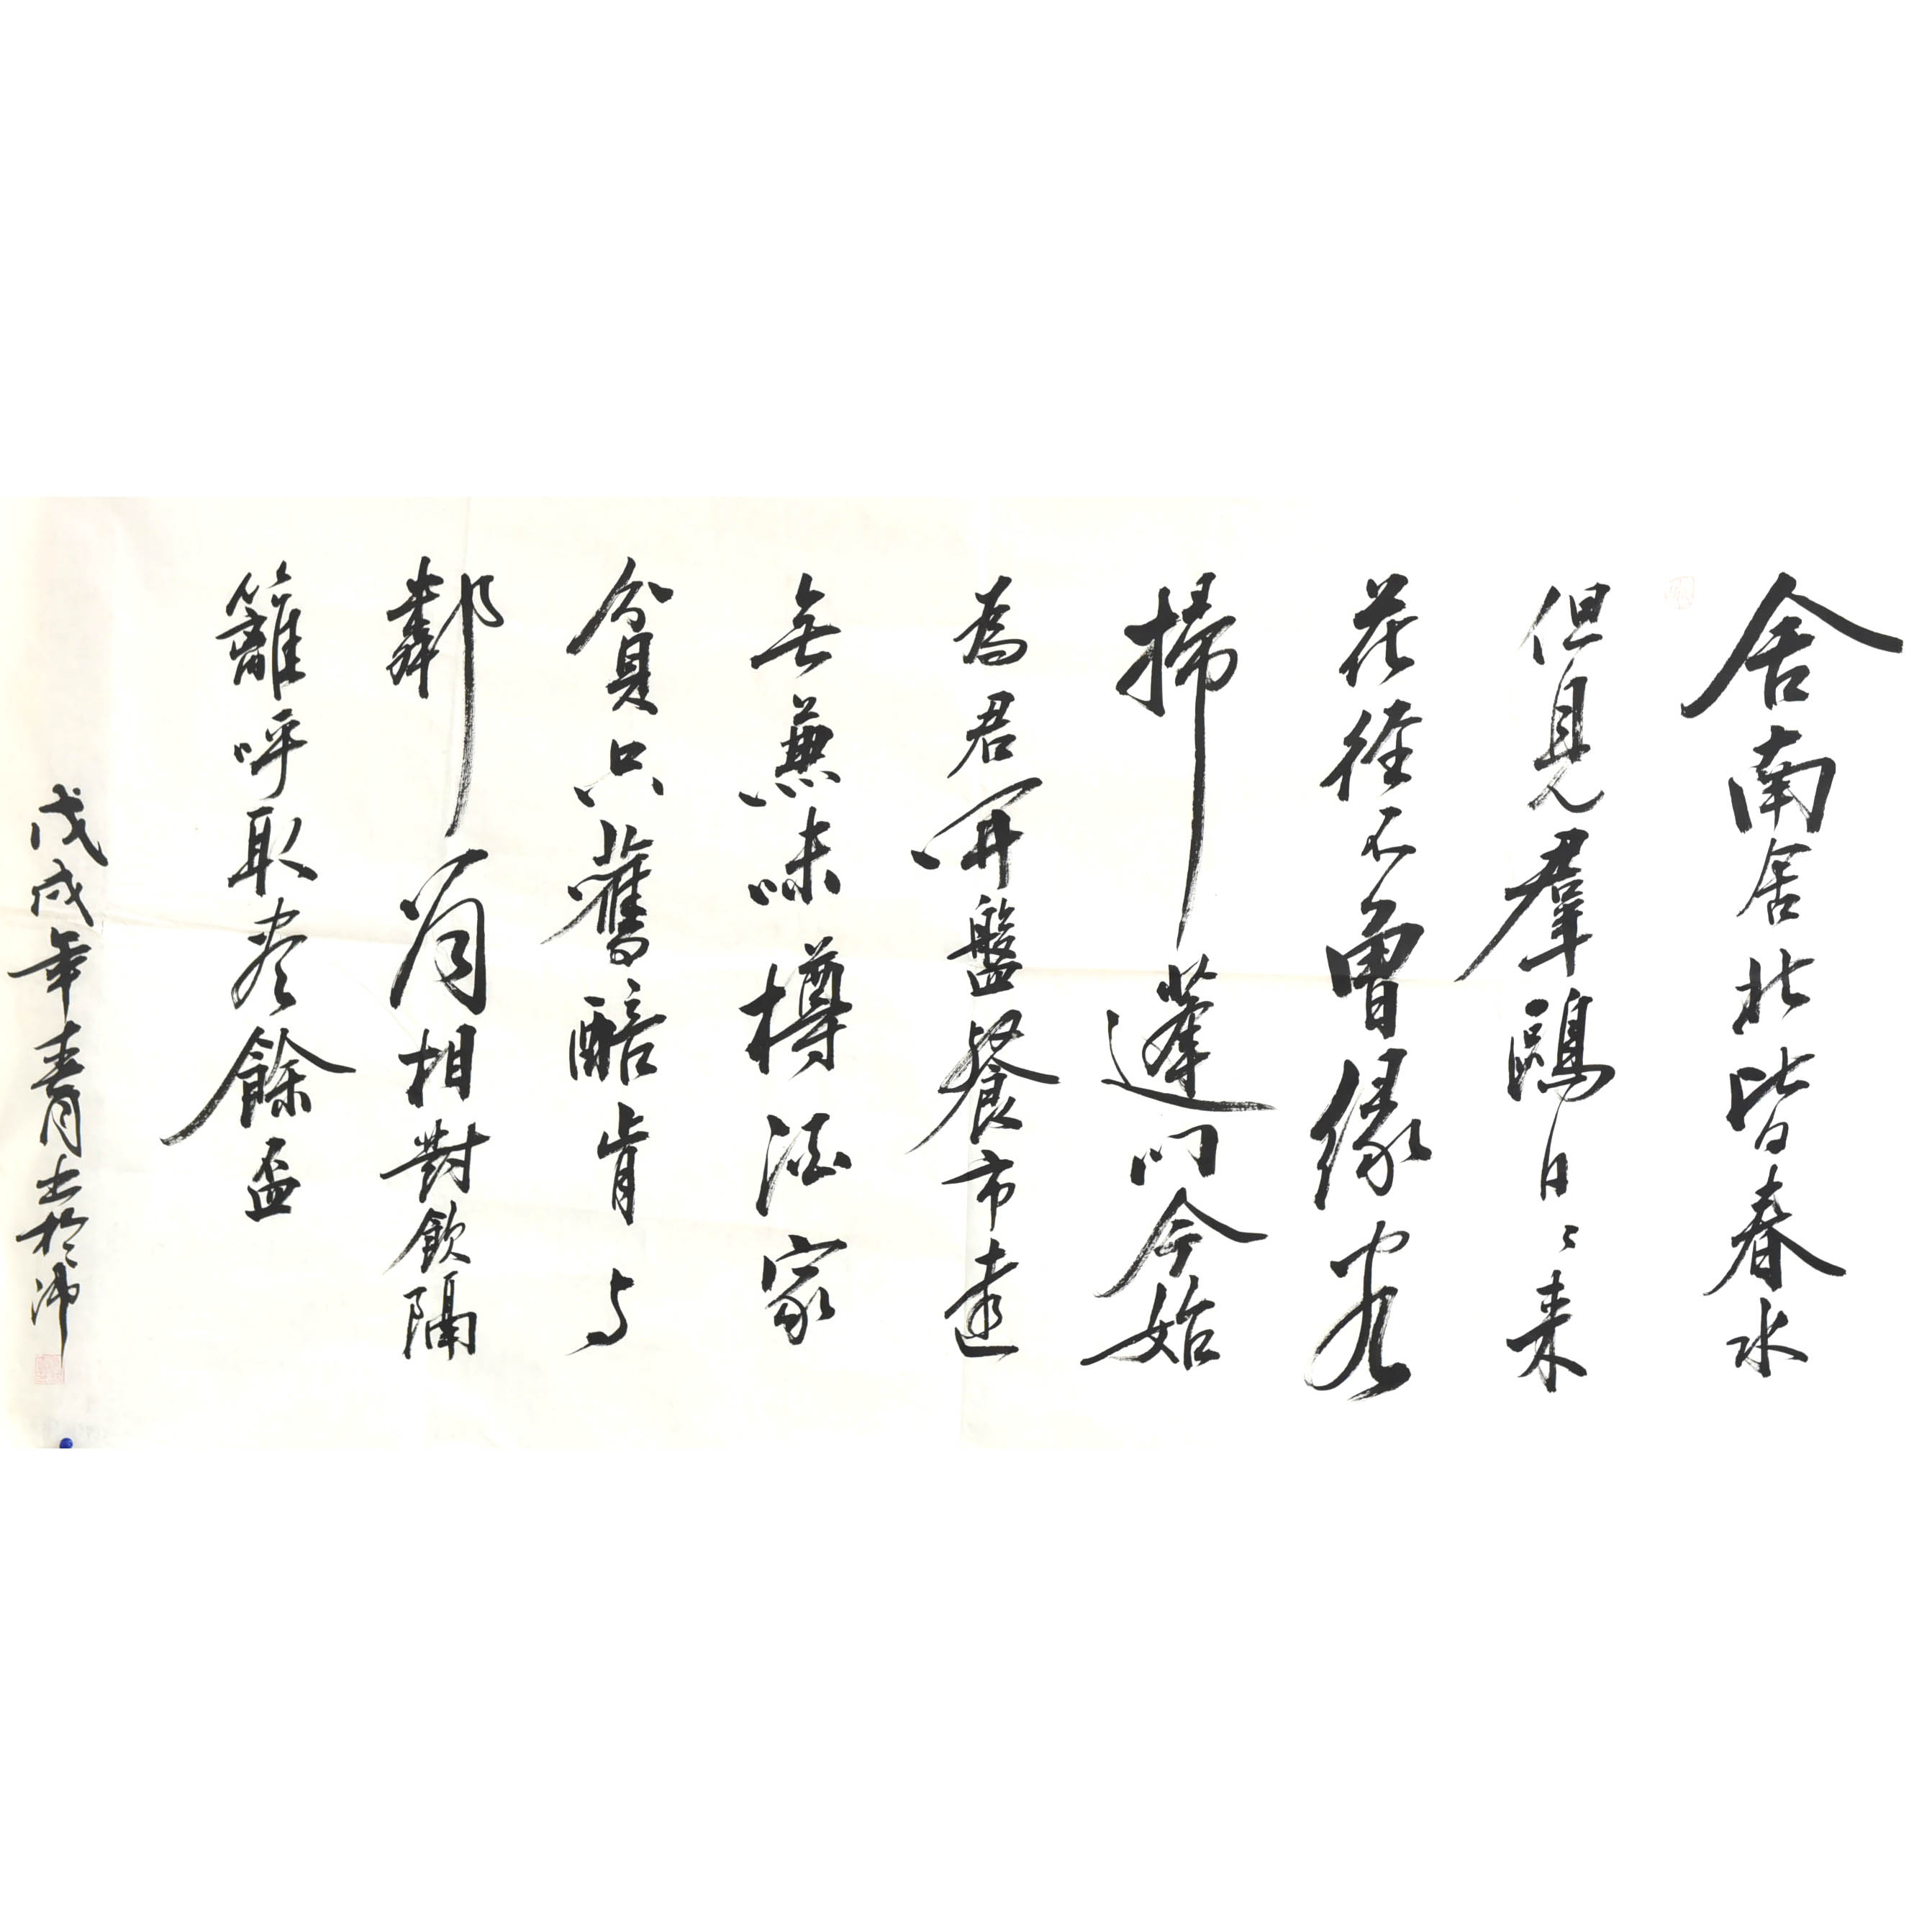 舍南舍北皆春水
但見羣鷗日〻来
花徑不曾緣客
掃蓬門今始
為君開盤餐市遠
无兼味樽酒家
貧只舊醅肯与
鄰翁相對飲隔
籬呼取尽餘盃
戊戌年於沛